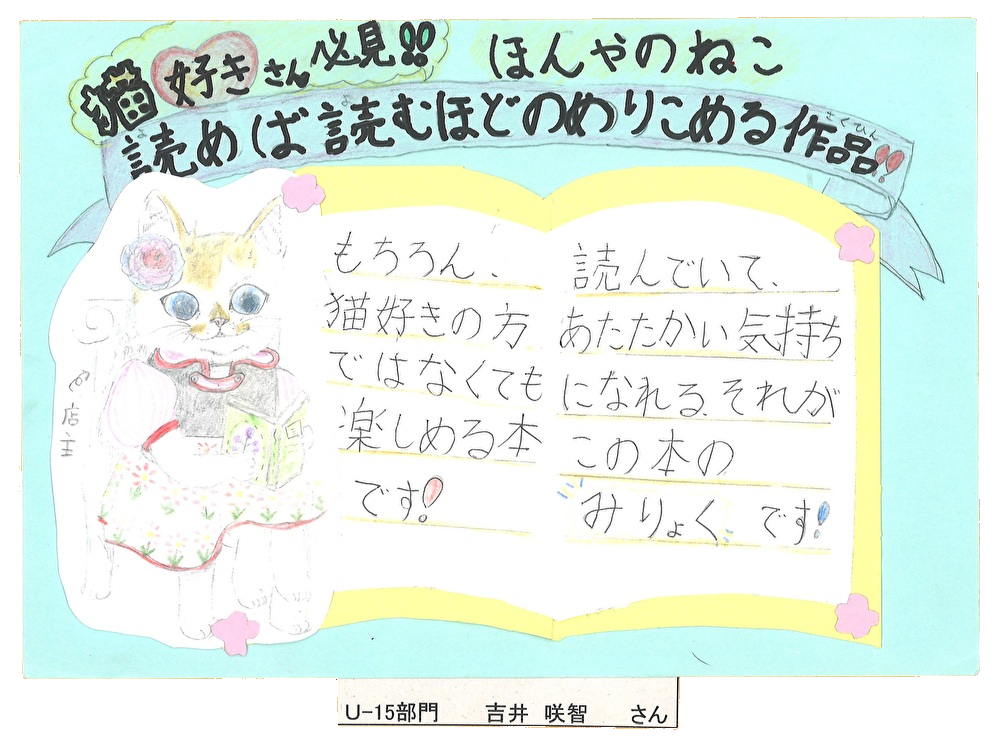 猫好きさん必見!!
ほんやのねこ
読めば読むほどのめりこめる作品!!
よ
よ
さくひん
店主
もちろん、
猫好きの方
ではなくても
楽しめる本
です!
読んでいて、
あたたかい気持ち
になれる。それが
この本の
みりょくです!
U-15部門 吉井 咲智 さん